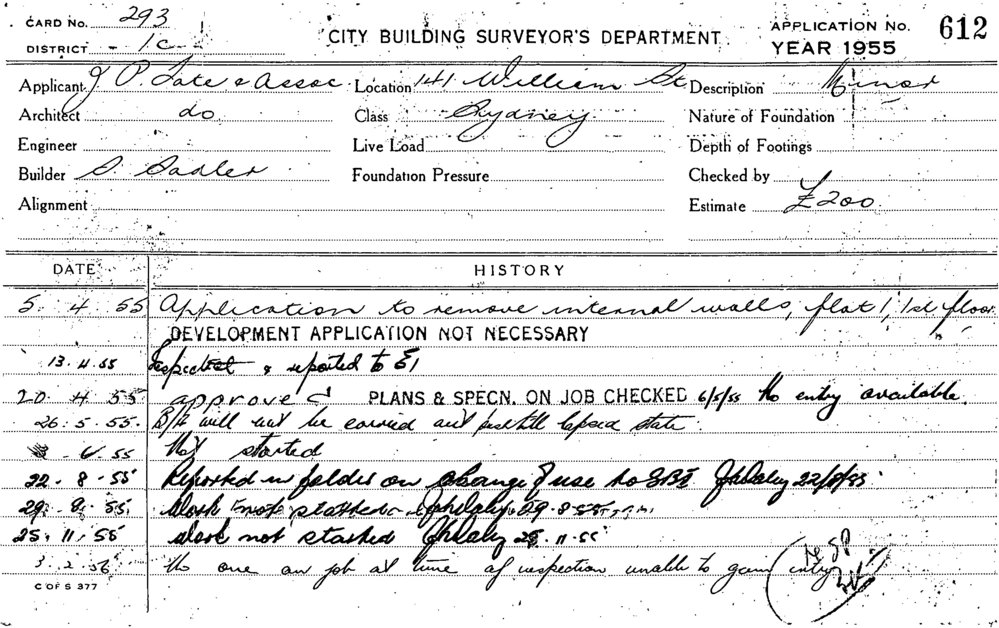 CARD NO. 293
DISTRICT - 1c
CITY BUILDING SURVEYOR'S DEPARTMENT.
APPLICATION NO. 612
YEAR 1955
Applicant J P. Tate & Assoc Location 141 William St Description Minor
Architect do Class Sydney Nature of Foundation
Engineer Live Load Depth of Footings
Builder S. Sadler Foundation Pressure Checked by
Alignment Estimate £200.
DATE HISTORY
5. 4. 55 Application to remove internal walls, flat 1, 1st floor
DEVELOPMENT APPLICATION NOT NECESSARY
13.4.55 Inspected & reported to E1
20. 4. 55 approved PLANS & SPECN. ON JOB CHECKED 6/5/55 No entry available.
26.5.55. B/A will not be carried out lapsed state.
6.55 Not started
22. 8. 55 Reported in folder on change of use to 22/8/55
29. 8. 55. Work not started 29.8.55
25. 11. 55 Work not started 25.11.55
3. 2. 56 No one on job at time of inspection unable to gain entry
C OF S 377